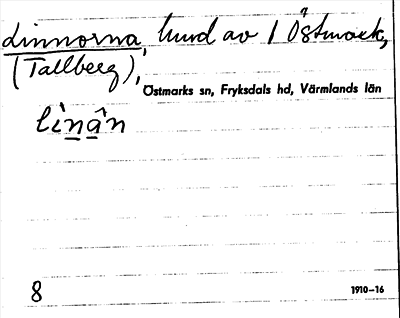 dinnorna, hund av 1 Östmark,
(Tallberg),
Östmarks sn, Fryksdals hd, Värmlands län
lìnân
8 1910-16